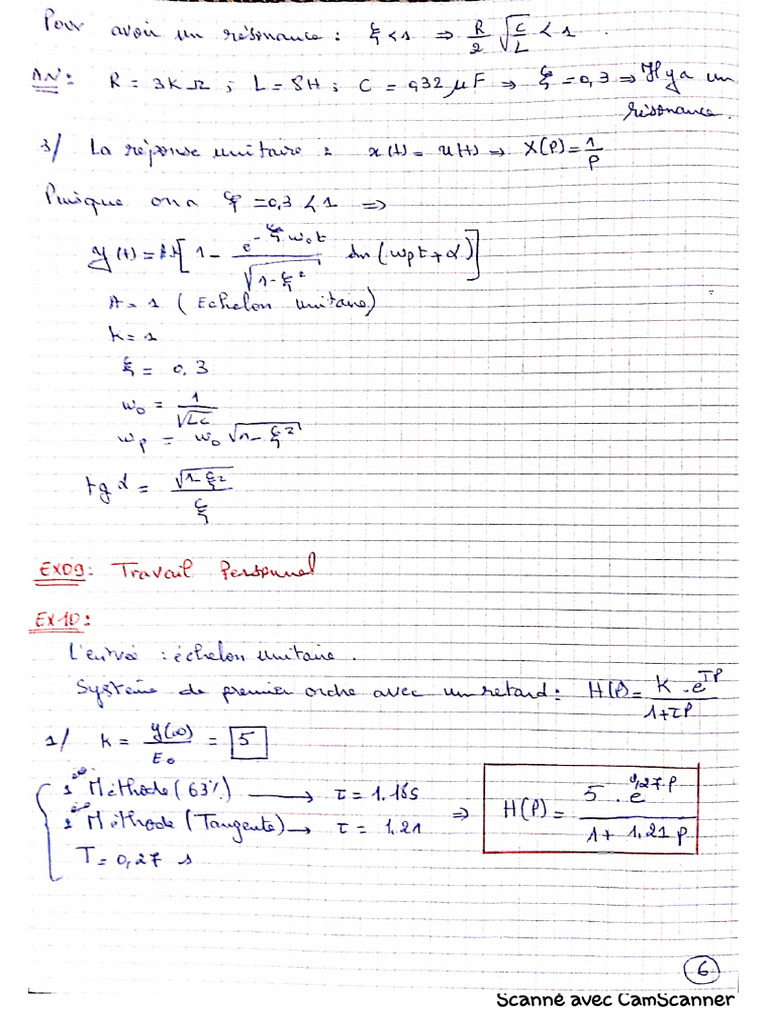 Pour avoir un résonance : ξ < 1 ⇒ R/2 √(C/L) < 1 .
AN : R = 3K Ω ; L = 8H ; C = 0,32 μF ⇒ ξ = 0,3 ⇒ Il y a un
résonance.
3/ La réponse unitaire : x(t) = u(t) → X(P) = 1/P
Puisque on a ξ = 0,3 < 1 ⇒
y(t) = A.k[ 1 - e^(-ξ w₀t)/√(1-ξ²) sin(wpt + α) ]
A = 1 ( Echelon unitaire)
k = 1
ξ = 0,3
w₀ = 1/√LC
wp = w₀ √(1-ξ²)
tg α = √(1-ξ²)/ξ
EX09: Travail Personnel
EX10:
L'entrée : échelon unitaire .
Système de premier ordre avec un retard : H(P) = K . e^(TP)/(1+τP)
1/ k = y(∞)/E₀ = 5
Méthode (63%) → τ = 1.18s
Méthode (Tangente) → τ = 1,21 ⇒ H(P) = 5 . e^(0,27.P)/(1 + 1,21 P)
T = 0,27 s
6
Scanné avec CamScanner